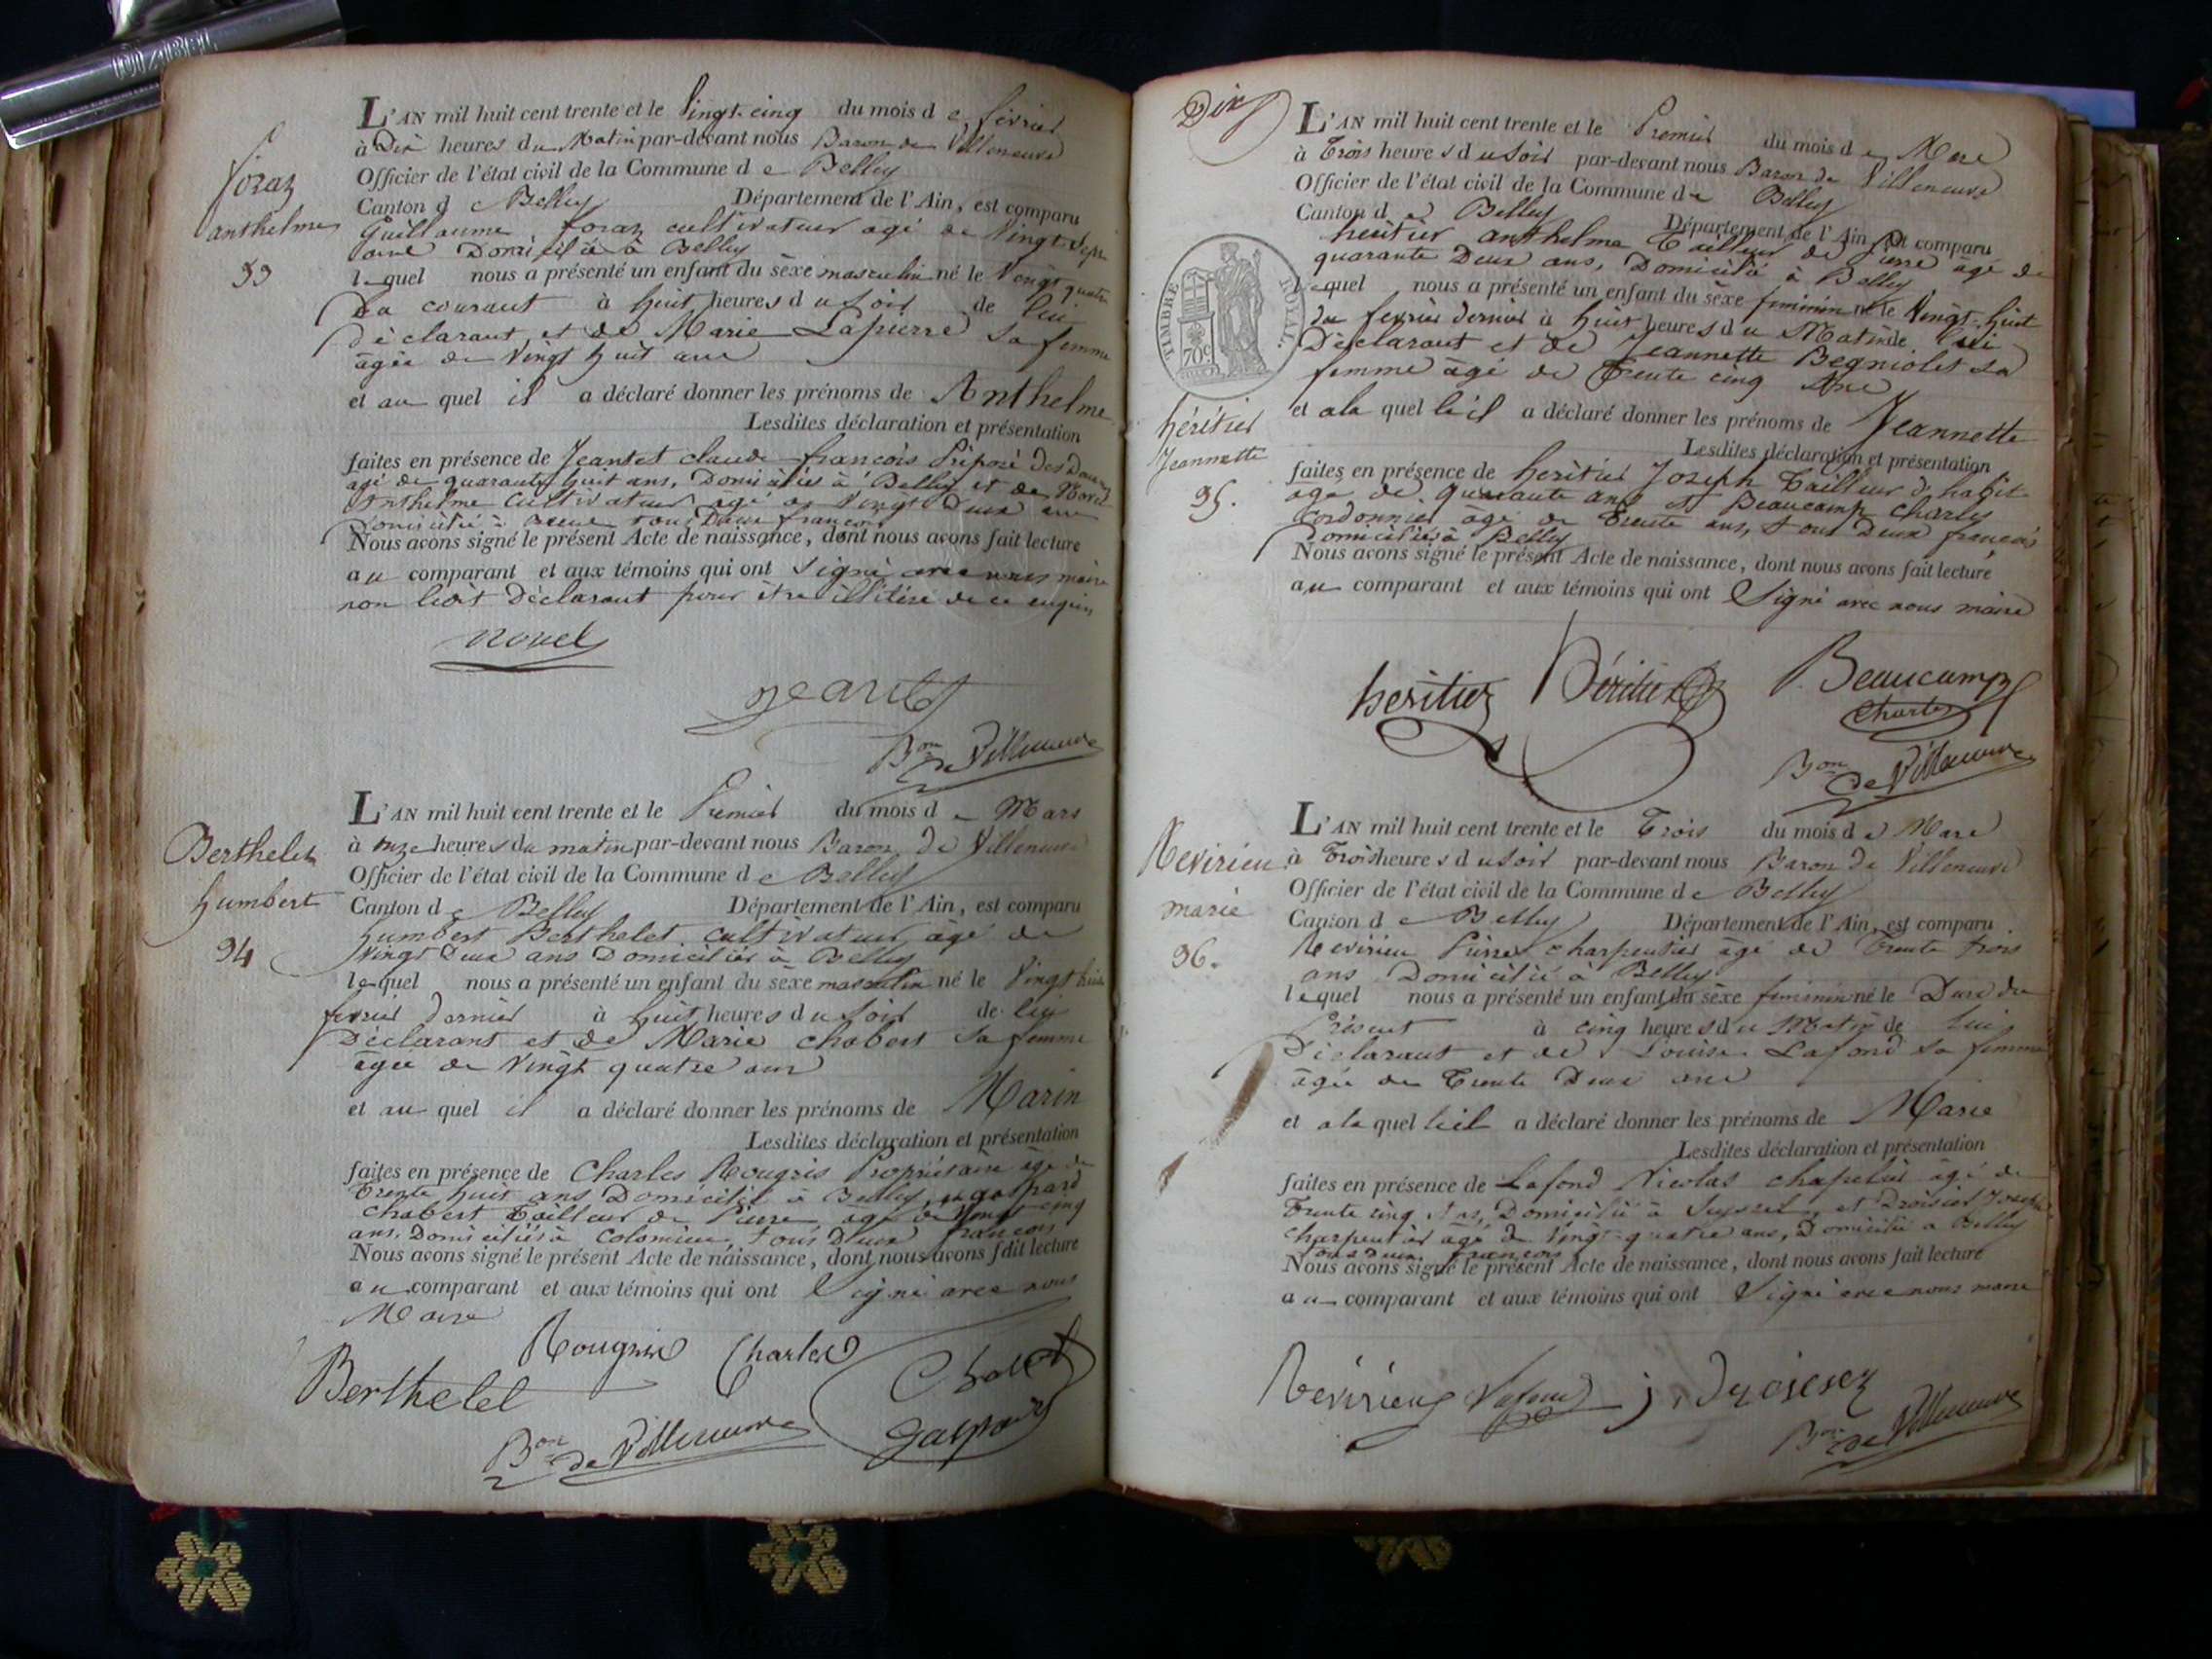 Foraz
anthelme
L'AN mil huit cent trente et le Vingt-cinq du mois de fevrier
à Dix heures du Matin par-devant nous Baron de Villeneuve
Officier de l'état civil de la Commune de Belley
Canton de Belley Département de l'Ain, est comparu
Guillaume foraz cultivateur agé de Vingt Sept
ans Domicilié à Belley
lequel nous a présenté un enfant du sèxe masculin né le Vingt quatre
Du courant à huit heures du Soir de lui
Déclarant et de Marie Lapierre Sa femme
âgée de Vingt huit ans
et au quel il a déclaré donner les prénoms de Anthelme
Lesdites déclaration et présentation
faites en présence de Jeantet claude françois Préposé des Douanes
agé de quarante huit ans, Domiciliés à Belley et de
Anthelme Cultivateur agé de Vingt Deux ans
Domicilié à tous Deux françois
Nous avons signé le présent Acte de naissance, dont nous avons fait lecture
au comparant et aux témoins qui ont Signé avec nous maire
non ledit Déclarant pour être illitéré de ce enquis
novel
jeantet
Bon de Villeneuve
Berthelet
humbert
94
L'AN mil huit cent trente et le Premier du mois de Mars
à onze heures du matin par-devant nous Baron De Villeneuve
Officier de l'état civil de la Commune de Belley
Canton de Belley Département de l'Ain, est comparu
humbert Berthelet cultivateur âgé de
Vingt Deux ans Domicilié à Belley
lequel nous a présenté un enfant du sèxe masculin né le Vingt huit
fevrier dernier à huit heures du Soir de lui
Déclarant et de Marie chabert Sa femme
âgée de Vingt quatre ans
et au quel il a déclaré donner les prénoms de Marin
Lesdites déclaration et présentation
faites en présence de Charles Rougris Propriétaire âgé de
Trente huit ans Domicilié à Belley, et gaspard
chabert Tailleur de Pierre âgé de Vingt cinq
ans, Domiciliés à Colomieu, tous Deux françois
Nous avons signé le présent Acte de naissance, dont nous avons fait lecture
au comparant et aux témoins qui ont Signé avec nous
Maire
Rougris Charles
Berthelet
Chabert
gaspard
Bon de Villeneuve
Dix
L'AN mil huit cent trente et le Premier du mois de Mars
à Trois heures du Soir par-devant nous Baron de Villeneuve
Officier de l'état civil de la Commune de Belley
Canton de Belley Département de l'Ain est comparu
héritier anthelme Tailleur de Pierre âgé de
quarante Deux ans, Domicilié à Belley
TIMBRE ROYAL.
70c
lequel nous a présenté un enfant du sèxe feminin né le Vingt huit
du fevrier dernier à huit heures du Matin de lui
Déclarant et de Jeannette Begniolet Sa
femme âgé de Trente cinq Ans
et a la quel le il a déclaré donner les prénoms de Jeannette
Lesdites déclaration et présentation
héritier
Jeannette
95.
faites en présence de heritier Joseph Tailleur d'habit
age de quarante ans et Beaucamp Charles
Cordonnier âgé de Trente ans, tous Deux françois
Domiciliés à Belley
Nous avons signé le présent Acte de naissance, dont nous avons fait lecture
au comparant et aux témoins qui ont Signé avec nous maire
heritier héritier Beaucamp
Charles
Bon de Villeneuve
Revirieu
marie
96.
L'AN mil huit cent trente et le Trois du mois de Mars
à Trois heures du Soir par-devant nous Baron de Villeneuve
Officier de l'état civil de la Commune de Belley
Canton de Belley Département de l'Ain, est comparu
Revirieu Pierre charpentier âgé de Trente trois
ans Domicilié à Belley
lequel nous a présenté un enfant du sèxe feminin né le Deux du
Présent à cinq heures du Matin de lui
Déclarant et de Louise Lafond Sa femme
âgée de Trente Deux ans
et a la quel le il a déclaré donner les prénoms de Marie
Lesdites déclaration et présentation
faites en présence de Lafond Nicolas chapelier âgé de
Trente cinq Ans, Domicilié à Seyssel, et Droisier Joseph
charpentier âgé de Vingt-quatre ans, Domicilié a Belley
tous Deux françois
Nous avons signé le présent Acte de naissance, dont nous avons fait lecture
au comparant et aux témoins qui ont Signé avec nous maire
Revirieu Lafond j. Droisier
Bon de Villeneuve